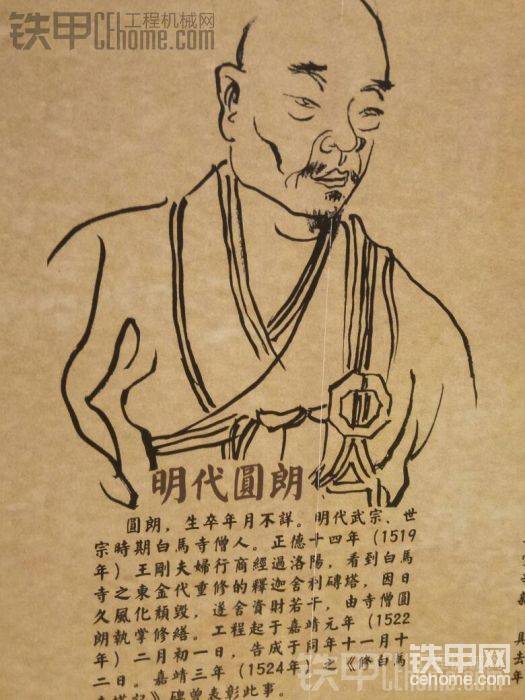 铁甲 工程机械网
CEhome.com
明代圓朗
圓朗，生卒年月不詳。明代武宗、世
宗時期白馬寺僧人。正德十四年（1519
年）王剛夫婦行商經過洛陽，看到白馬
寺之東金代重修的釋迦舍利磚塔，因日
久風化頹毀，遂舍資財若干，由寺僧圓
朗執掌修繕。工程起于嘉靖元年（1522
年）二月初一日，告成于同年十一月十
二日。嘉靖三年（1524年）之《修白馬
碑曾表彰此事。
具
去
年
铁甲网
cehome.com